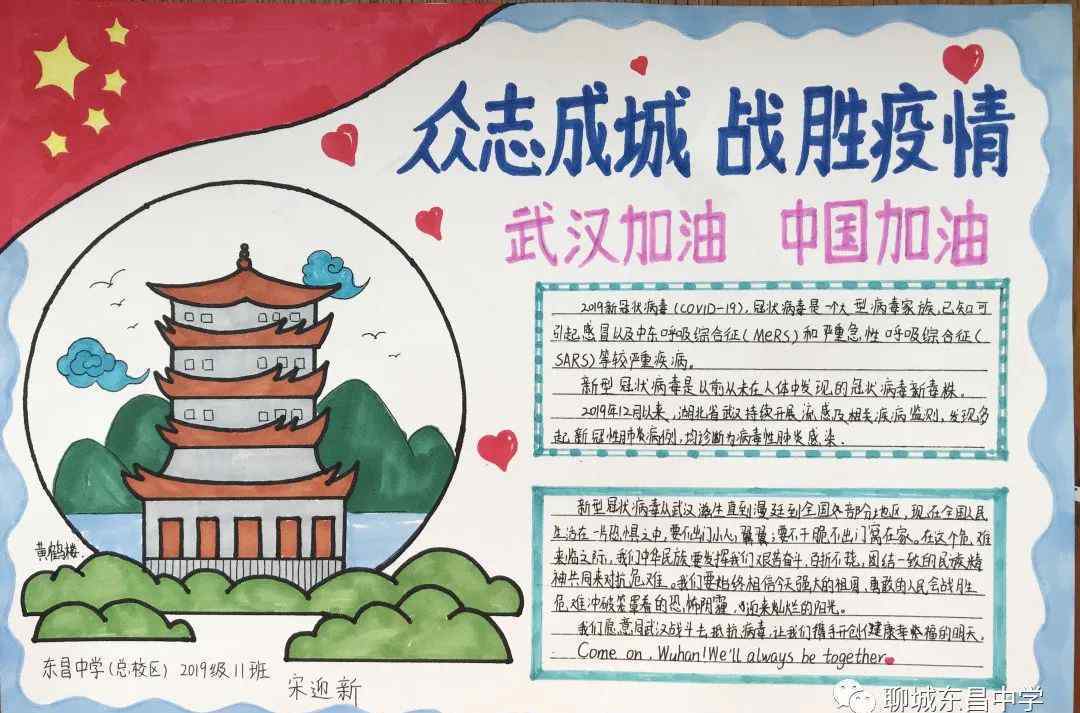 众志成城 战胜疫情
武汉加油 中国加油
2019新冠状病毒(COVID-19),冠状病毒是一个大型病毒家族,已知可
引起感冒以及中东呼吸综合征(MeRS)和严重急性呼吸综合征(
SARS)等较严重疾病。
新型冠状病毒是以前从未在人体中发现的冠状病毒新毒株。
2019年12月以来,湖北省武汉持续开展流感及相关疾病监测,发现多
起新冠性肺炎病例,均诊断为病毒性肺炎感染.
新型冠状病毒从武汉滋生直到漫延到全国各部分地区,现在全国人民
生活在一片恐惧之中,要不出门小心翼翼;要不干脆不出门窝在家。在这个危难
来临之际,我们中华民族要发挥我们艰苦奋斗,百折不挠,团结一致的民族精
神共同来对抗危难。我们要始终相信今天强大的祖国,勇敢的人民会战胜
危难冲破笼罩着的恐怖阴霾,迎来灿烂的阳光。
我们愿意同武汉战斗去抵抗病毒,让我们携手开创健康幸福的明天,
Come on,Wuhan!We'll always be together
黄鹤楼
东昌中学(总校区) 2019级11班
宋迎新
聊城东昌中学